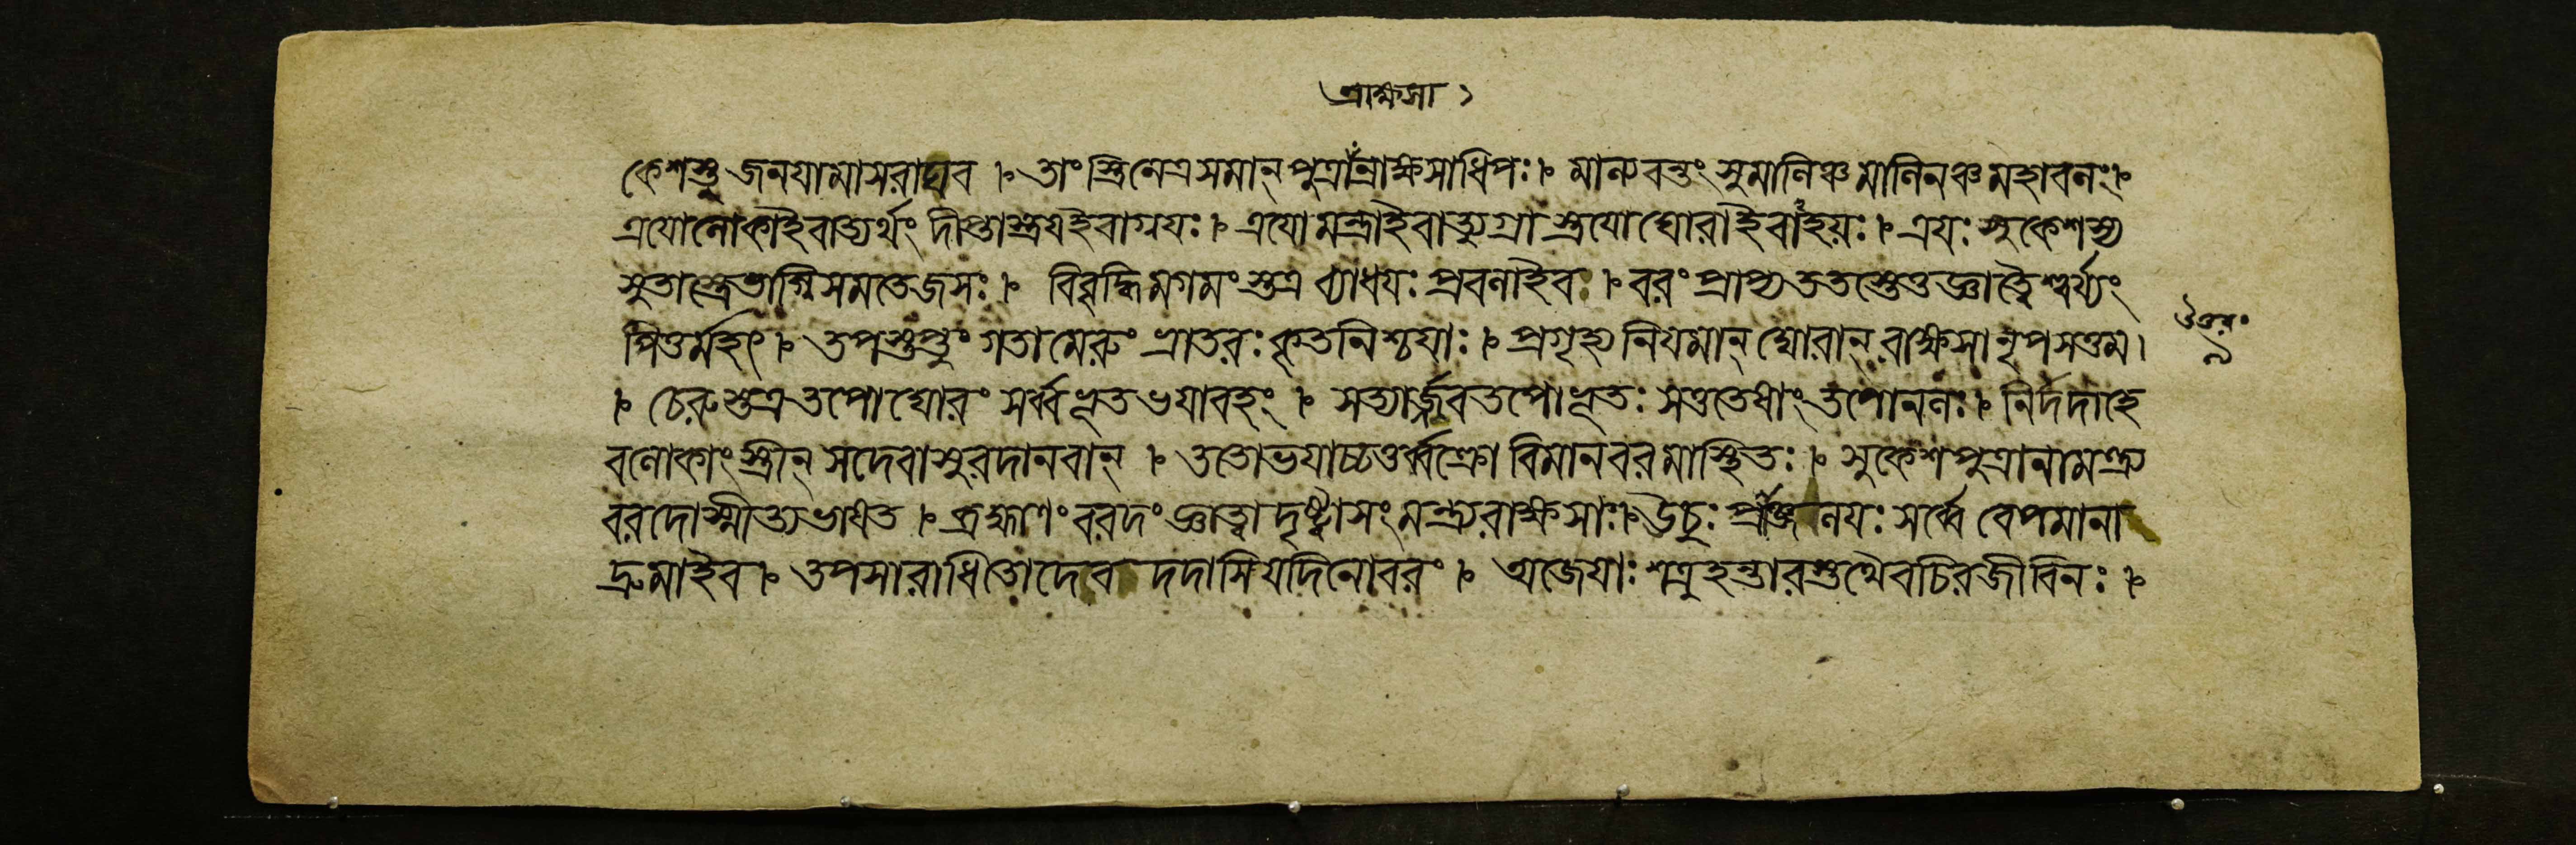 রাক্ষসা ১
কেশস্তু জনযামাসরাঘব । তাংস্ত্রিনেত্রসমান্ পুত্রান্রাক্ষসাধিপঃ । মাল্যবন্তং সুমালিঞ্চ মালিনঞ্চ মহাবলং ।
ত্রযোলোকাইবাত্যর্থং দীপ্তাস্ত্রযইবাগ্নযঃ । ত্রযো মন্ত্রাইবাত্যুগ্রা স্ত্রযোঘোরাইবাহয়ঃ । ত্রযঃ সুকেশস্য
সুতাস্ত্রেতাগ্নিসমতেজসঃ । বিবৃদ্ধিমগমংস্তত্র ব্যাধযঃ প্রবলাইব । বরং প্রাপ্য ততস্তেতু জ্ঞাত্বৈশ্বর্য্যং
পিতুর্মহৎ । তপস্তপ্তুং গতামেরুং ভ্রাতরঃ কৃতনিশ্চযাঃ । প্রগৃহ্য নিযমান্ ঘোরান্ রাক্ষসানৃপসত্তম ।
উত্তর
৯
। চেরুস্তত্রতপোঘোরং সর্ব্বভূতভযাবহং । সত্যার্জ্জবতপোভূতঃ সতুতেষাং তপোনলঃ । নির্দদাহে
বলোকাংস্ত্রীন্ সদেবাসুরদানবান্ । ততোভযাচ্চতুর্ব্বক্ত্রো বিমানবরমাস্থিতঃ । সুকেশপুত্রানামন্ত্র্য
বরদোস্মীত্যভাষত । ব্রহ্মাণং বরদং জ্ঞাত্বা দৃষ্ট্বাসংমন্ত্র্যরাক্ষসাঃ । ঊচুঃ প্রাঞ্জলযঃ সর্ব্বে বেপমানা
দ্রুমাইব । তপসারাধিতোদেব দদাসিযদিনোবরং । অজেযাঃ শত্রুহন্তারস্তথৈবচিরজীবিনঃ ।